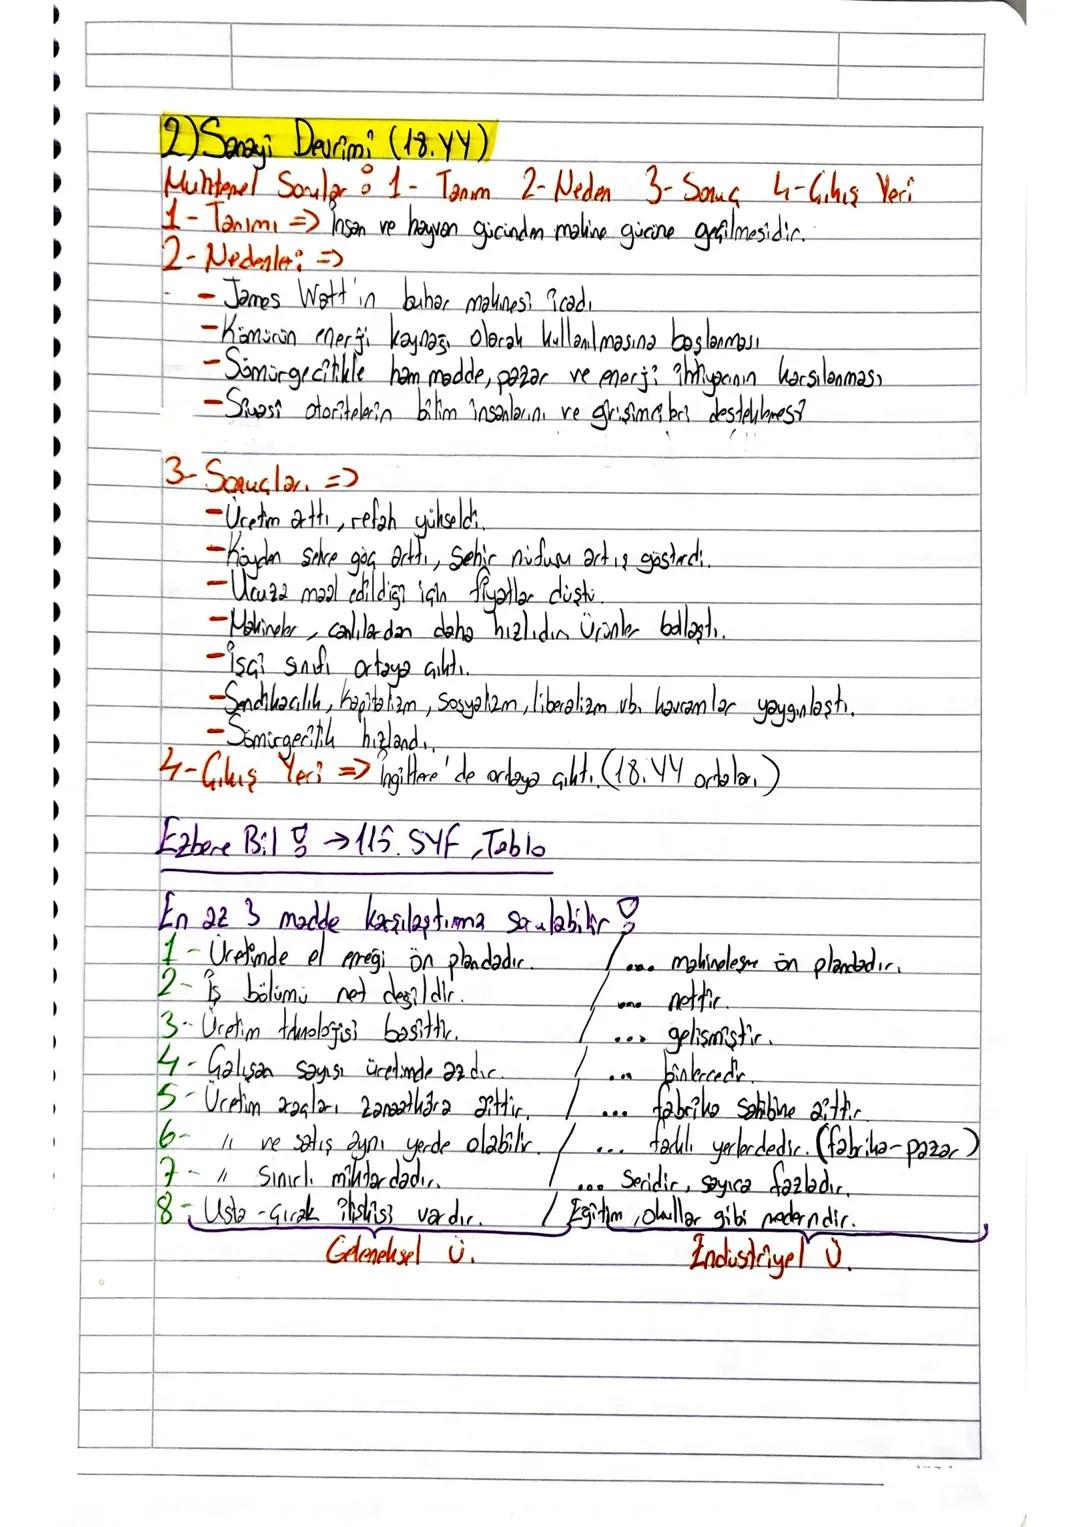 2) Sanayi Devrimi (18.YY)
Muhtemel Sorular : 1- Tanım 2- Neden 3- Sonuç 4- Çıkış Yeri
1- Tanımı => İnsan ve hayvan gücünden makine gücüne geçilmesidir.
2- Nedenleri =>
- James Watt'ın buhar makinesi icadı
- Kömürün enerji kaynağı olarak kullanılmasına başlanması
- Sömürgecilikle ham madde, pazar ve enerji ihtiyacının karşılanması
- Siyasi otoritelerin bilim insanlarını ve girişimcileri desteklemesi
3- Sonuçları =>
- Üretim arttı, refah yükseldi.
- Köyden şehre göç arttı, şehir nüfusu artış gösterdi.
- Ucuza maal edildiği için fiyatlar düştü.
- Makineler, canlılardan daha hızlıdır. Ürünler bollaştı.
- İşçi sınıfı ortaya çıktı.
- Sendikacılık, kapitalizm, sosyalizm, liberalizm vb. kavramlar yaygınlaştı.
- Sömürgecilik hızlandı.
4- Çıkış Yeri => İngiltere'de ortaya çıktı. (18.YY ortaları)
Ezbere Bil ! → 115. SYF, Tablo
En az 3 madde karşılaştırma sorulabilir !
1- Üretimde el emeği ön plandadır. / ... makineleşme ön plandadır.
2- İş bölümü net değildir. / ... nettir.
3- Üretim teknolojisi basittir. / ... gelişmiştir.
4- Çalışan sayısı üretimde azdır. / ... binlercedir.
5- Üretim araçları zanaatkâra aittir. / ... fabrika sahibine aittir.
6- " ve satış aynı yerde olabilir. / ... farklı yerlerdedir. (fabrika-pazar)
7- " Sınırlı miktardadır. / ... Seridir, sayıca fazladır.
8- Usta - Çırak ilişkisi vardır. / Eğitim, okullar gibi moderndir.
Geleneksel Ü. Endüstriyel Ü.